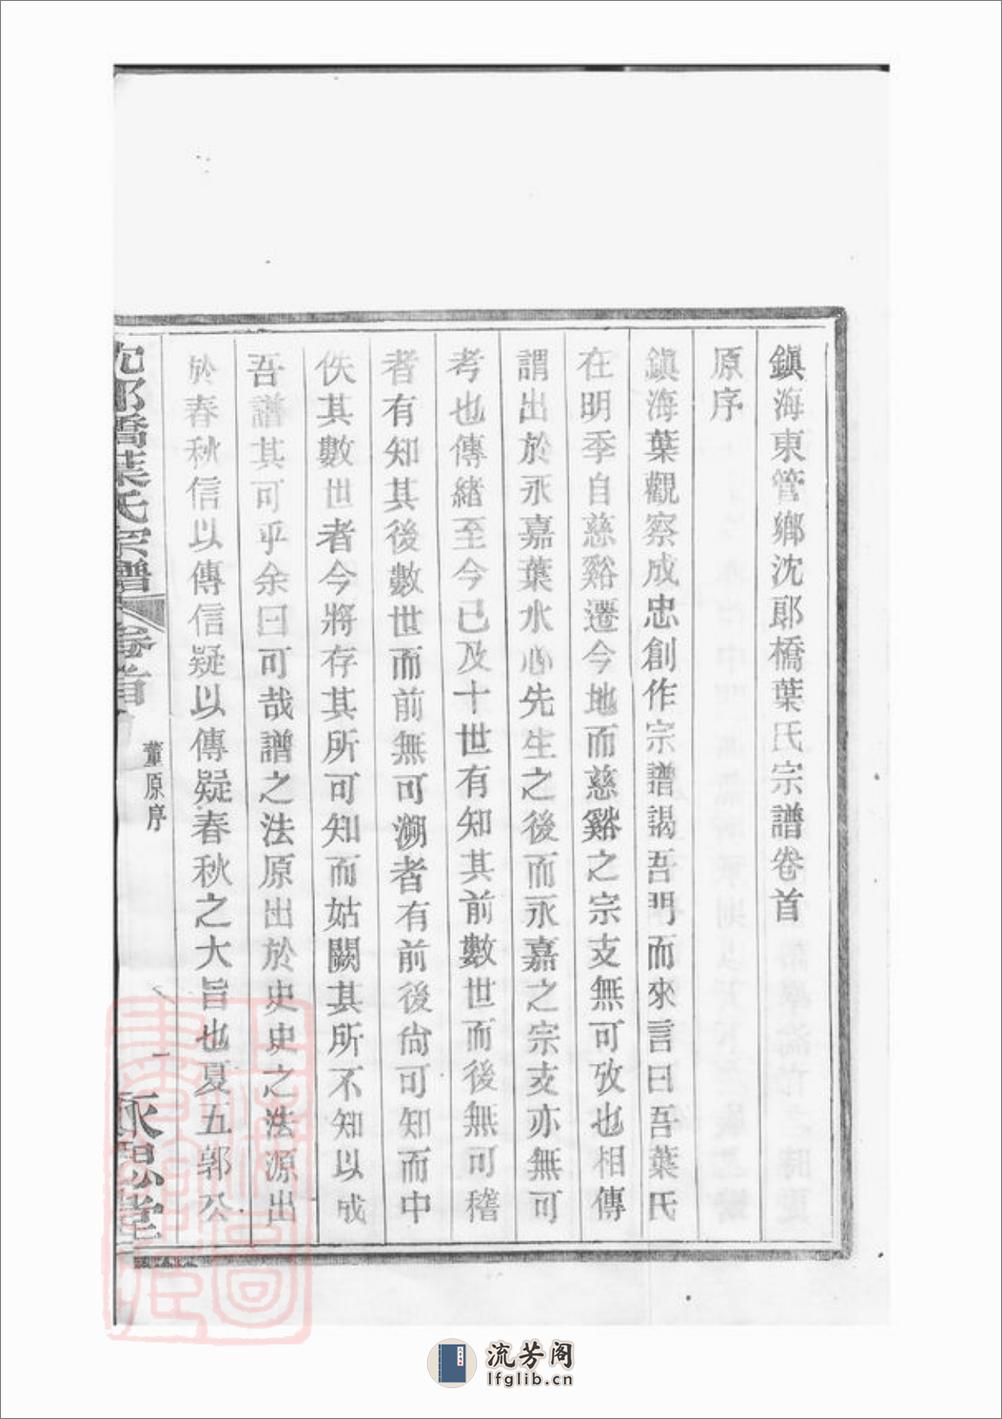 鎮海東管鄉沈郞橋葉氏宗譜卷首
原序
鎮海葉觀察成忠創作宗譜謁吾門而來言曰吾葉氏
在明季自慈谿遷今地而慈谿之宗支無可攷也相傳
謂出於永嘉葉水心先生之後而永嘉之宗支亦無可
考也傳緒至今已及十世有知其前數世而後無可稽
者有知其後數世而前無可溯者有前後尙可知而中
佚其數世者今將存其所可知而姑闕其所不知以成
吾譜其可乎余曰可哉譜之法原出於史史之法源出
於春秋信以傳信疑以傳疑春秋之大旨也夏五郭公
沈郞橋葉氏宗譜 卷首
董原序
一
永 堂
流芳阁
lfglib.cn